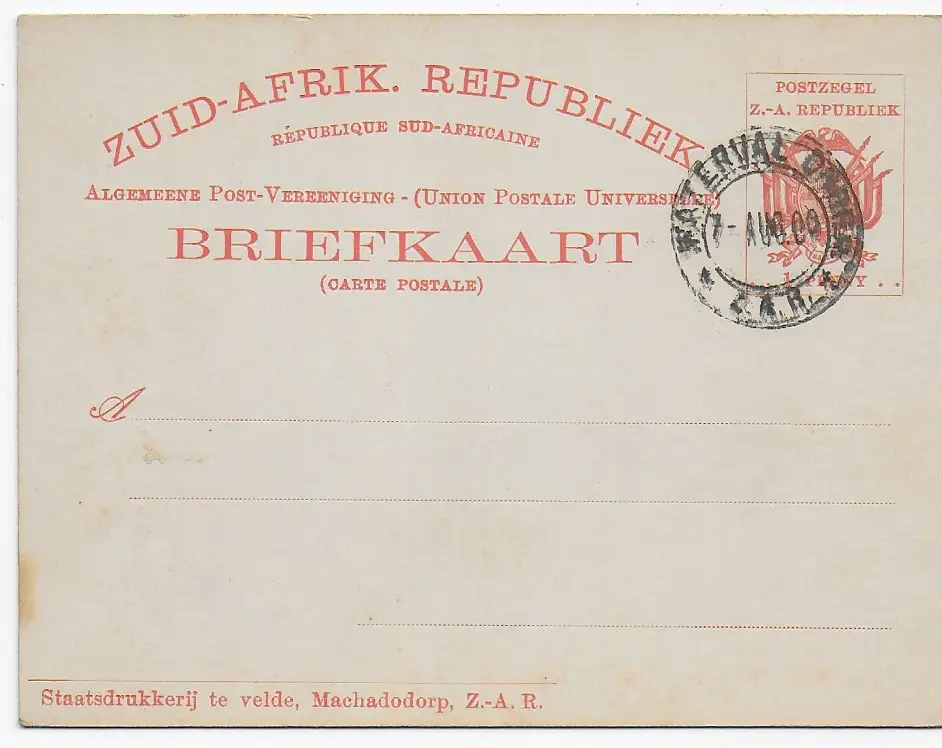 ZUID-AFRIK. REPUBLIEK
RÉPUBLIQUE SUD-AFRICAINE
ALGEMEENE POST-VEREENIGING - (UNION POSTALE UNIVERSELLE)
BRIEFKAART
(CARTE POSTALE)
POSTZEGEL
Z.-A. REPUBLIEK
1 PENNY . .
WATERVAL ONDER
7-AUG.00
* Z.A.R. *
A
Staatsdrukkerij te velde, Machadodorp, Z.-A. R.